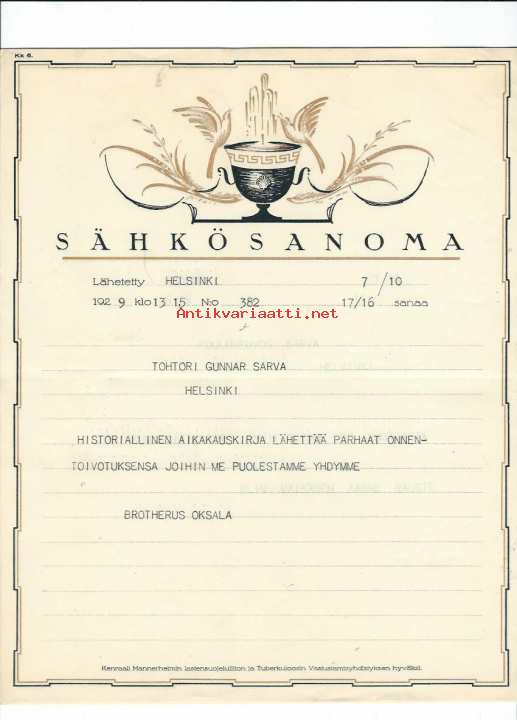 Kk 6.
SÄHKÖSANOMA
Lähetetty HELSINKI 7 / 10
1929 klo 13 15 N:o 382 17/16 sanaa
Antikvariaatti.net
TOHTORI GUNNAR SARVA
HELSINKI
HISTORIALLINEN AIKAKAUSKIRJA LÄHETTÄÄ PARHAAT ONNEN-
TOIVOTUKSENSA JOIHIN ME PUOLESTAMME YHDYMME
BROTHERUS OKSALA
Kenraali Mannerheimin lastensuojeluliiton ja Tuberkuloosin Vastustamisyhdistyksen hyväksi.